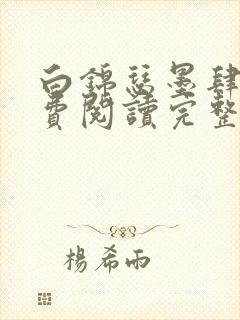 白錦瑟墨肆
費閱讀完整
楊希雨